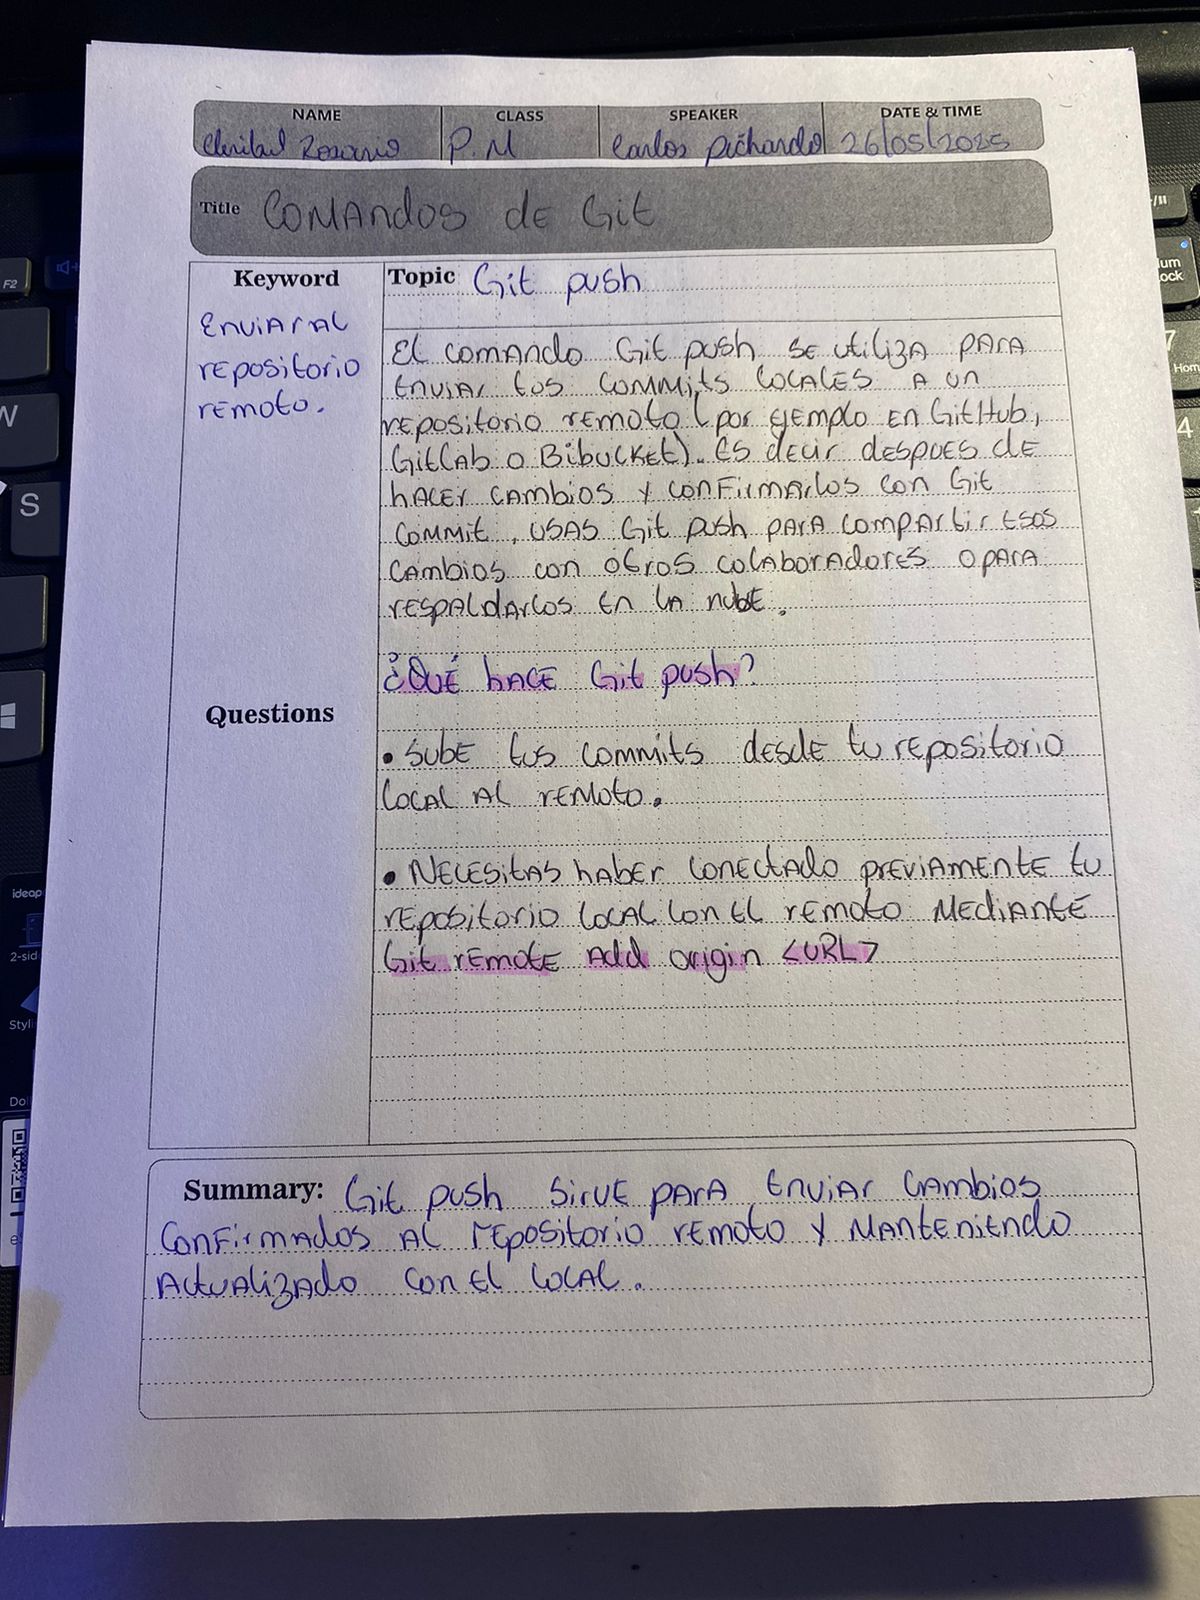 NAME CLASS SPEAKER DATE & TIME
Rosario P.M Carlos Pichardo 26/05/2025
Title Comandos de Git
Keyword
Enviar al
repositorio
remoto.
Topic Git push
El comando Git push se utiliza para
enviar tus commits locales a un
repositorio remoto (por ejemplo en GitHub,
GitLab o Bibucket). Es decir despues de
hacer cambios y confirmarlos con Git
commit, usas Git push para compartir esos
cambios con otros colaboradores o para
respaldarlos en la nube.
¿Qué hace Git push?
Questions
• Sube tus commits desde tu repositorio
local al remoto.
• Necesitas haber conectado previamente tu
repositorio local con el remoto mediante
Git remote add origin <URL>
Summary: Git push sirve para enviar cambios
confirmados al repositorio remoto y manteniendo
actualizado con el local.
F2
W
S
7
Home
4
ideap
2-sid
Styl
Dol